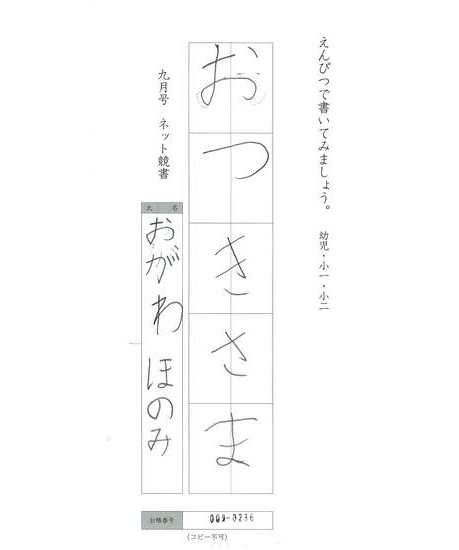 えんぴつで書いてみましょう。 幼児・小一・小二
おつきさま
九月号 ネット競書
氏名
おがわ ほのみ
台帳番号 009-0236
(コピー不可)